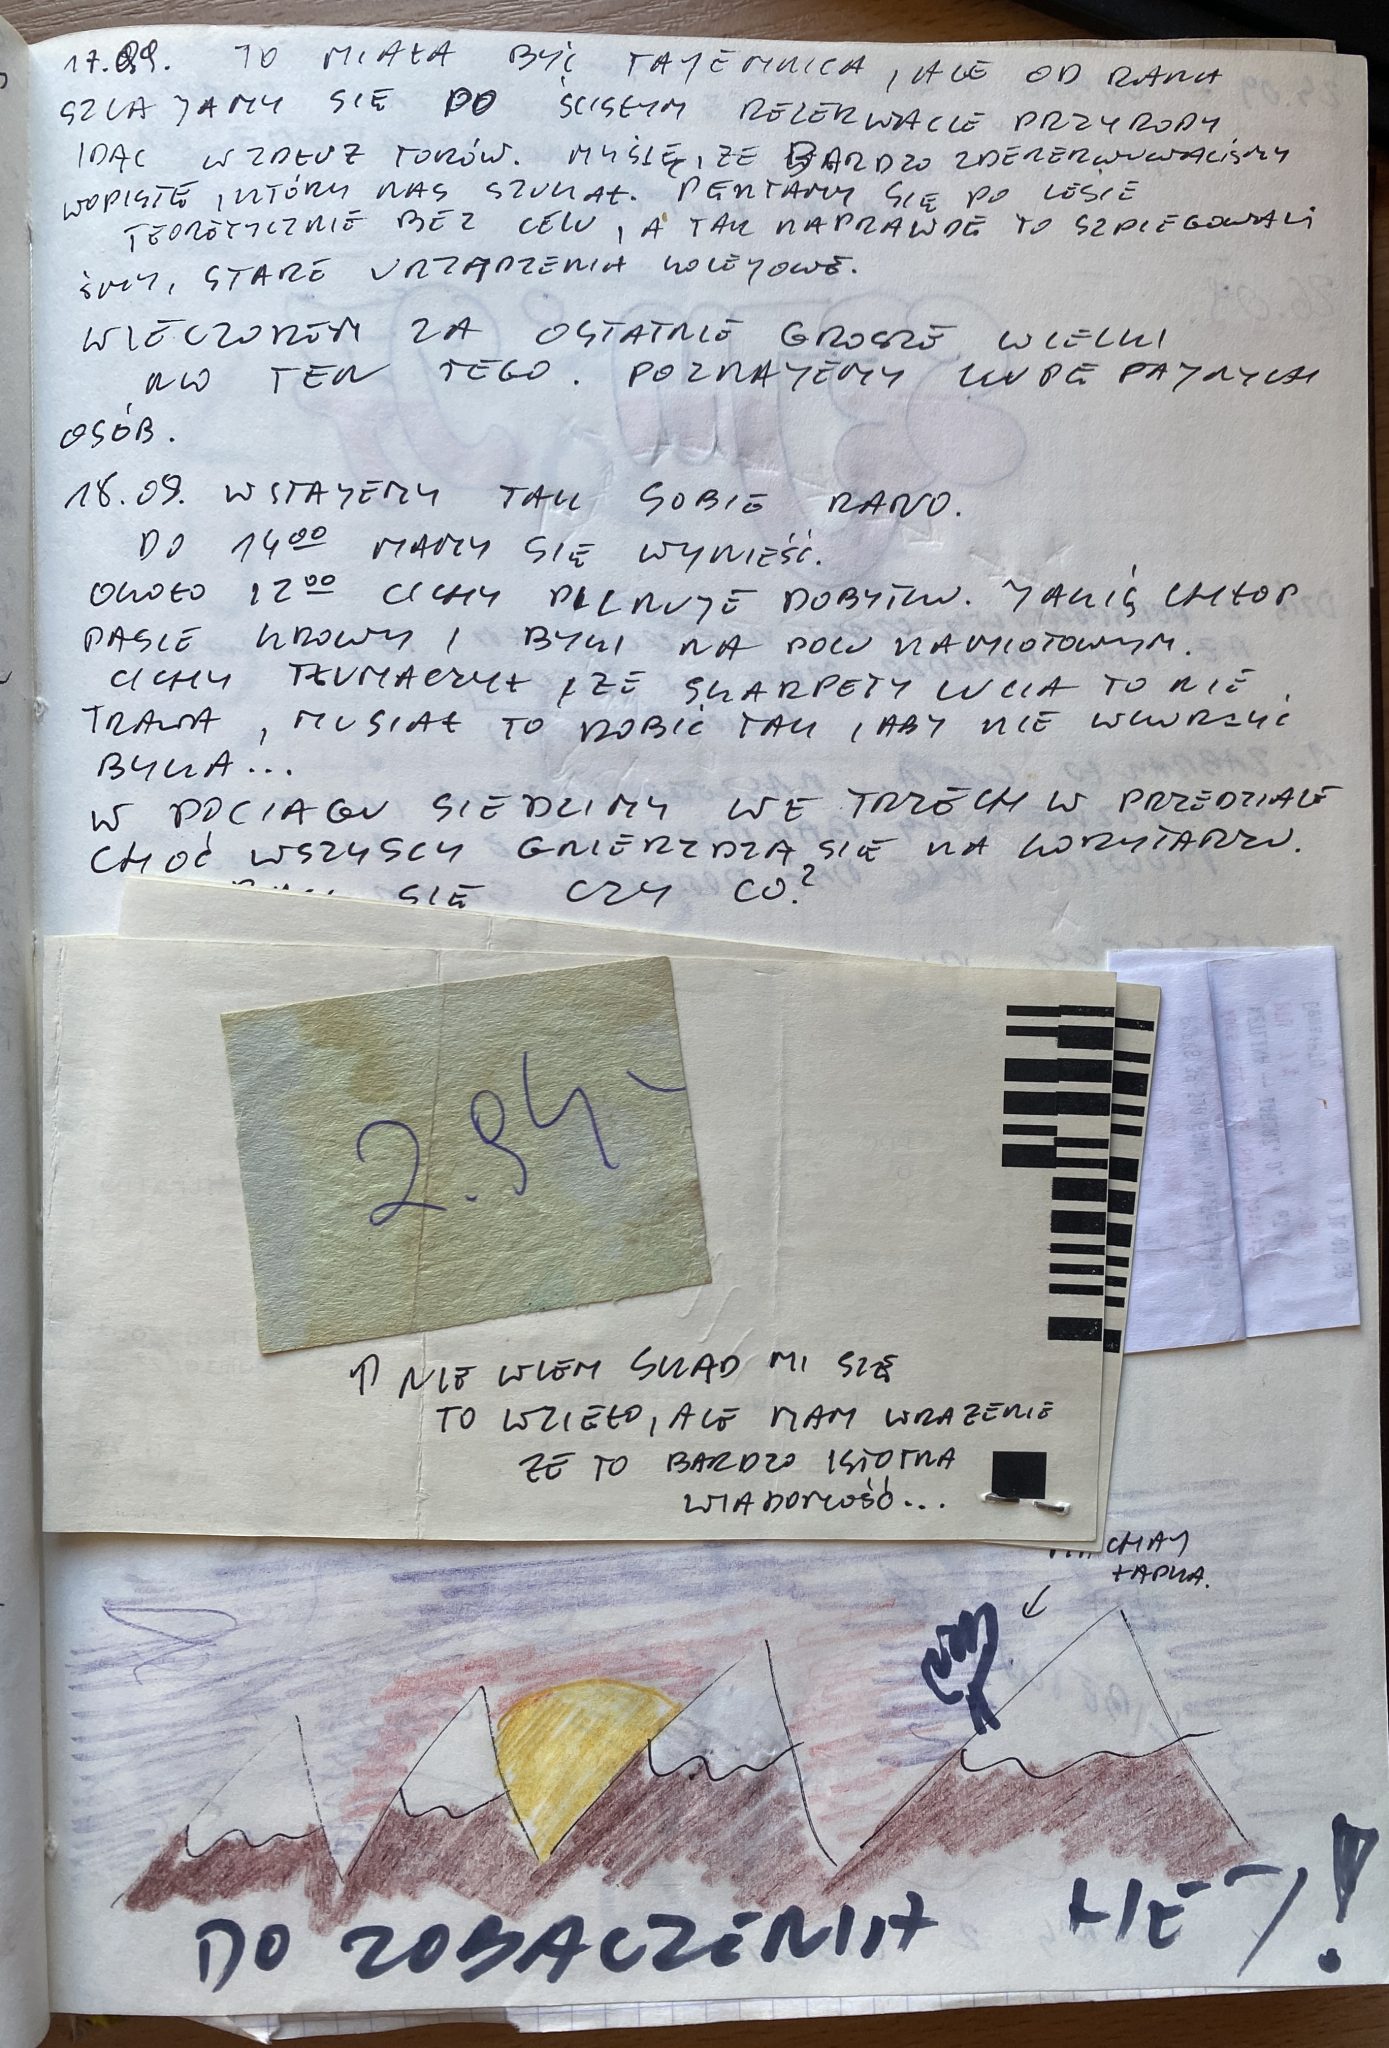 17.09. TO MIAŁA BYĆ TAJEMNICA, ALE OD RANA
SZLAJAMY SIĘ PO ŚCISŁYM REZERWACIE PRZYRODY
IDĄC WZDŁUŻ TORÓW. MYŚLĘ, ŻE BARDZO ZDENERWOWALIŚMY
WOPISTĘ, KTÓRY NAS SZUKAŁ. PENTAMY SIĘ PO LESIE
TEORETYCZNIE BEZ CELU, A TAK NAPRAWDĘ TO SZPIEGOWALI
ŚMY, STARE URZĄDZENIA KOLEJOWE.
WIECZOREM ZA OSTATNIE GROSZE WIELKI
NO TEN TEGO. POZNAJEMY KUPĘ FAJNYCH
OSÓB.
18.09. WSTAJEMY TAK SOBIE RANO.
DO 14⁰⁰ MAMY SIĘ WYNIEŚĆ.
OKOŁO 12⁰⁰ CICHY PILNUJE DOBYTKU. JAKIŚ CHŁOP
PASIE KROWY I BYKI NA POLU NAMIOTOWYM.
CICHY TŁUMACZYŁ, ŻE SKARPETY LUCIA TO NIE
TRAWA, MUSIAŁ TO ROBIĆ TAK, ABY NIE WKURZYĆ
BYKA...
W POCIĄGU SIEDZIMY WE TRZECH W PRZEDZIALE
CHOĆ WSZYSCY GNIEŻDŻĄ SIĘ NA KORYTARZU.
SIĘ CZY CO?
2.94-
↑ NIE WIEM SKĄD MI SIĘ
TO WZIĘŁO, ALE MAM WRAŻENIE
ŻE TO BARDZO ISTOTNA
WIADOMOŚĆ...
ŁAPKA.
↙
DO ZOBACZENIA !